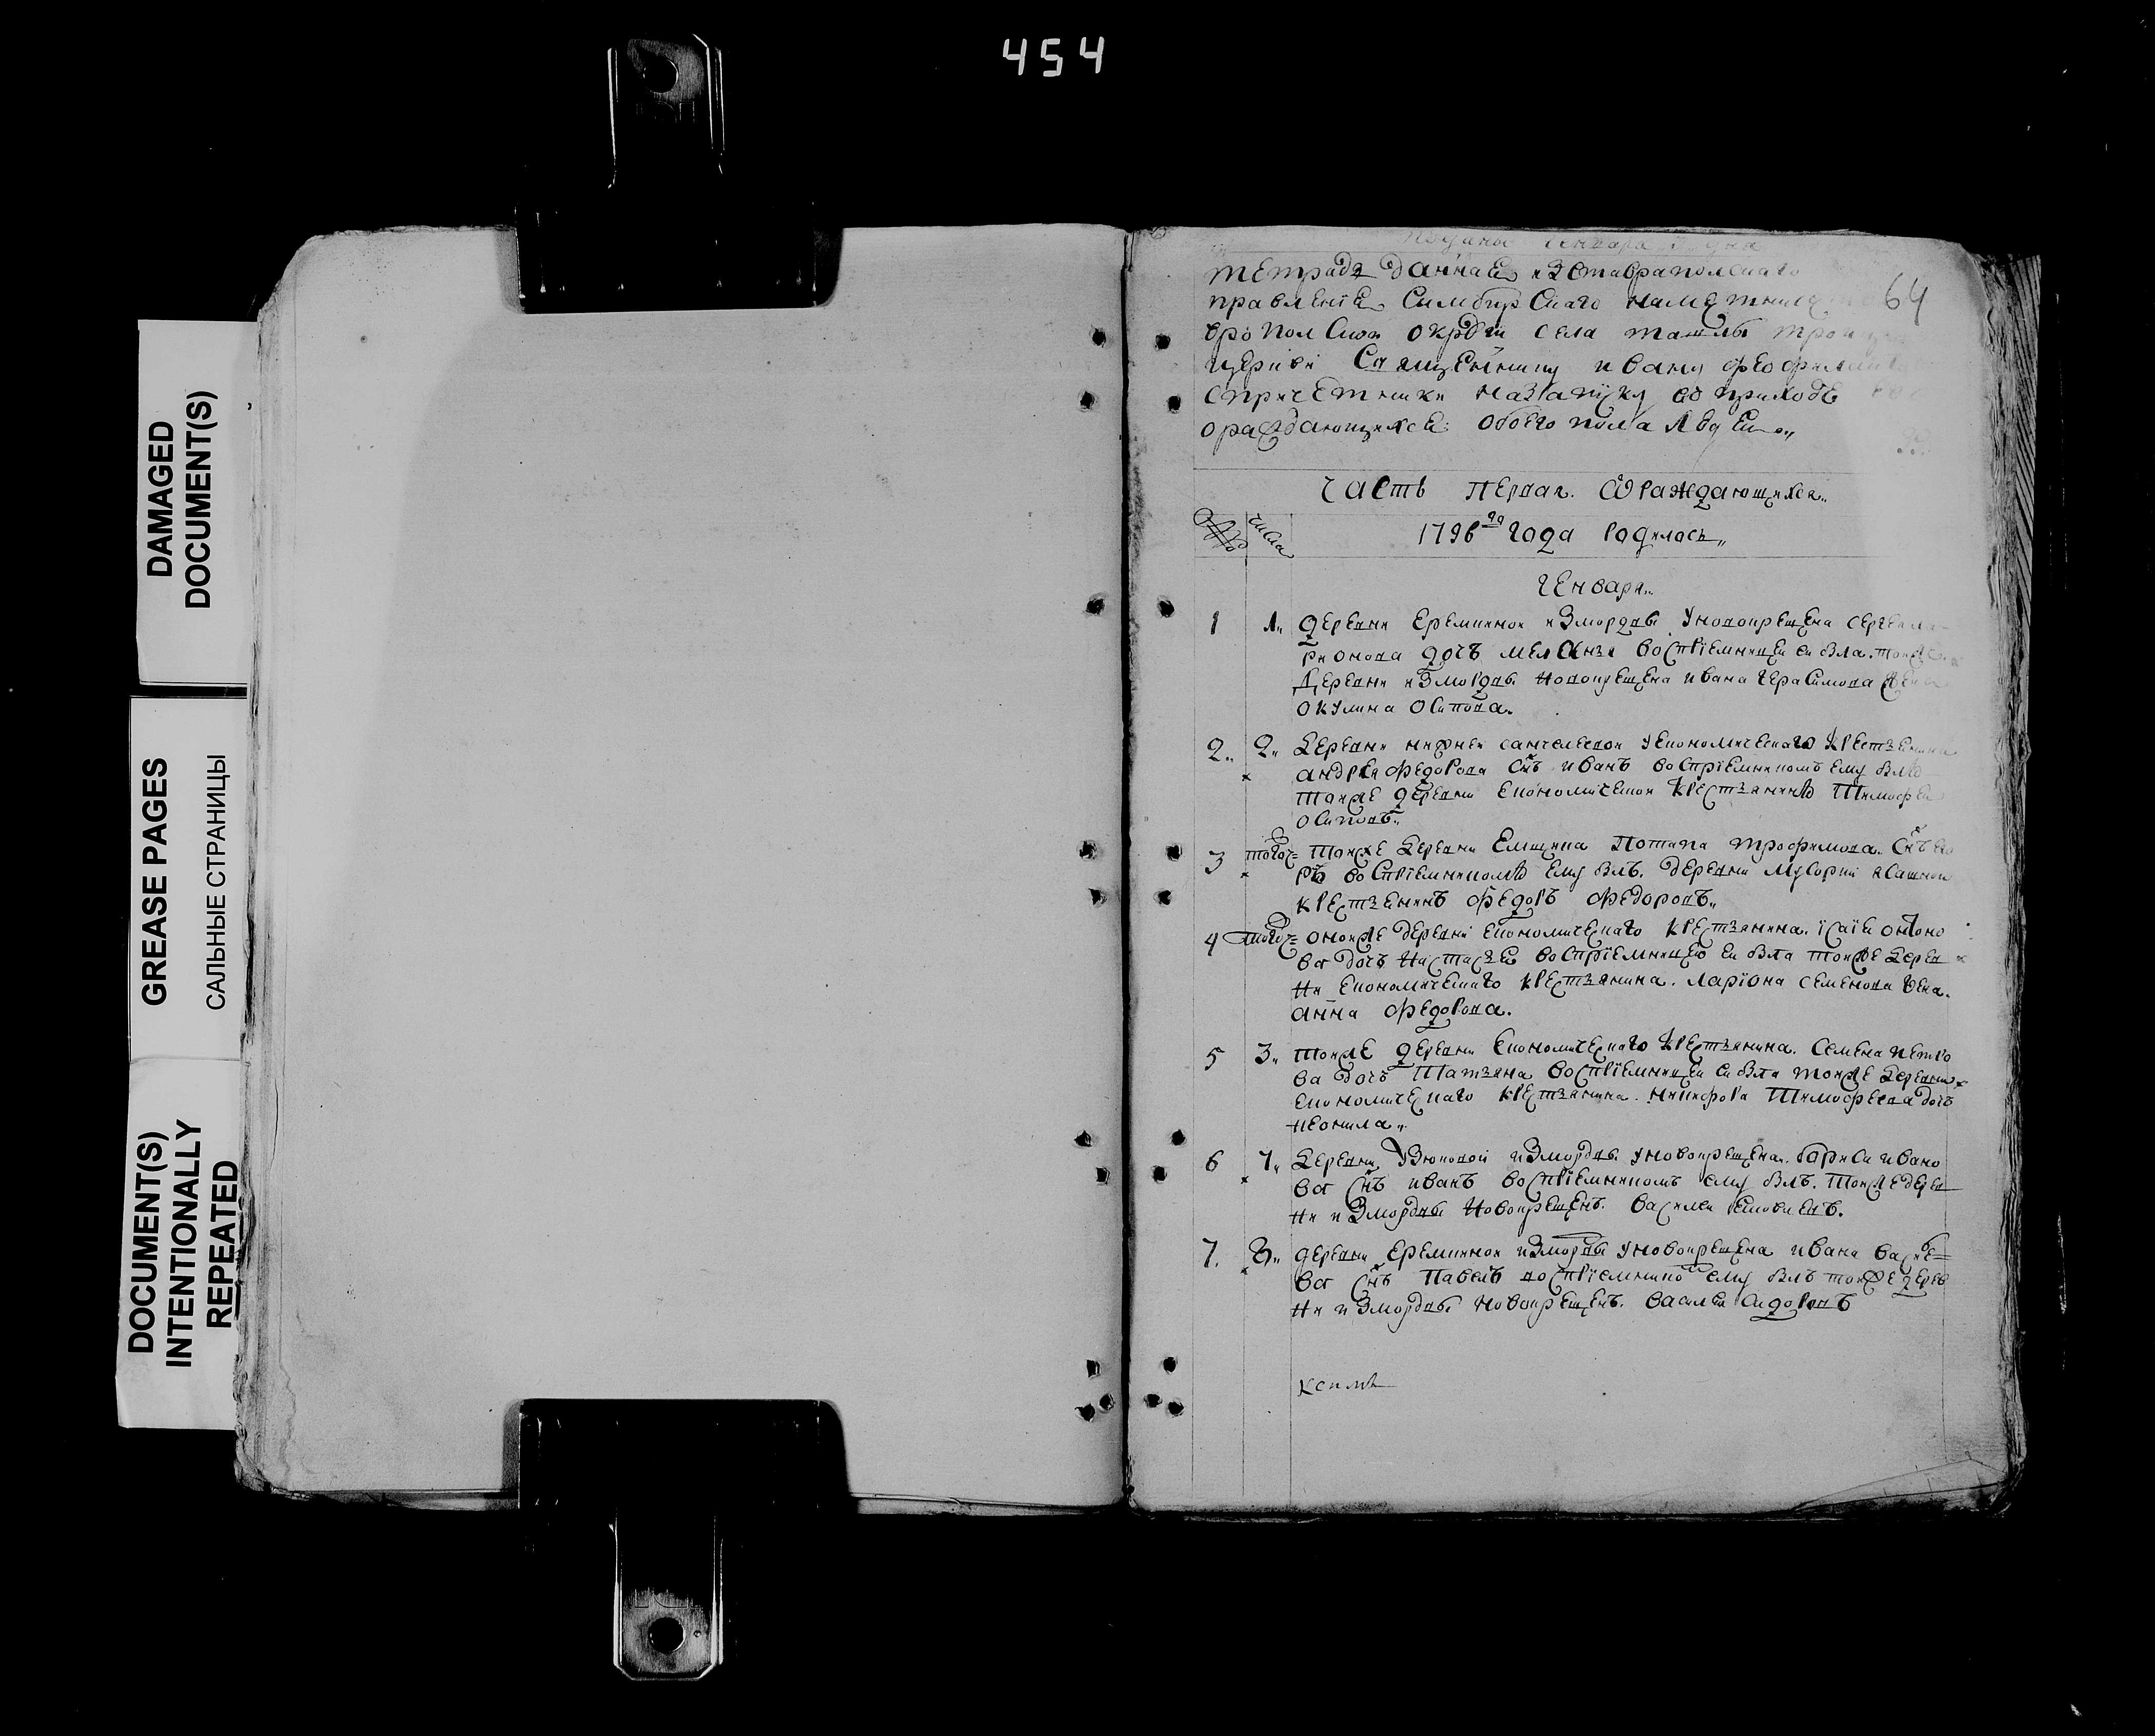 454
DAMAGED
DOCUMENT(S)
GREASE PAGES
САЛЬНЫЕ СТРАНИЦЫ
DOCUMENT(S)
INTENTIONALLY
REPEATED
64
тетрадь данная изставрапольскаго
правленїе Симбирскаго
вропольской округи села ташлы
церкви Священнику ивану
спричетники назапїску въ приходѣ
ораждающихся обоего пола людей
Часть первая. Ѿ раждающихся
числа
1796го года родилось
Генваря
1 1 деревни Еремкиной измордвы уновокрещена
рионова дочь воспрїемницей ей была
деревни измордвы новокрещена ивана герасимова
окулина осипова
2 2 деревни нижней санчелеевой уекономическаго крестьянина
андрея федорова снъ иванъ воспрїемникомъ ему былъ
тоиже деревни економической крестьянинъ Тимофеи
осиповъ
3 тогож тоиже деревни Емщика Потапа трофимова снъ
воспрїемникомъ ему былъ деревни Мусорки ясашнои
крестьянинъ федоръ федоровъ
4 тогож оноиже деревни економическаго крестьянина їсаїи онтоно
ва дочь настасья воспрїемницею ей была тоиже дерев
ни економическаго крестьянина ларїона семенова жена
анна федорова
5 3 тоиже деревни економическаго крестьянина семена петро
ва дочь Татьяна воспрїемницей ей была тоиже деревни
економическаго крестьянина никифора Тимофеева дочь
неонила
6 7 деревни Узюковой измордвы уновокрещена бориса ивано
ва снъ иванъ воспрїемникомъ ему былъ тоиже дерев
ни измордвы новокрещенъ василеи
7 8 деревни Еремкиной измордвы уновокрещена ивана
ва снъ Павелъ воспрїемнико ему былъ тоиже дерев
ни измордвы новокрещенъ василеи сидоровъ